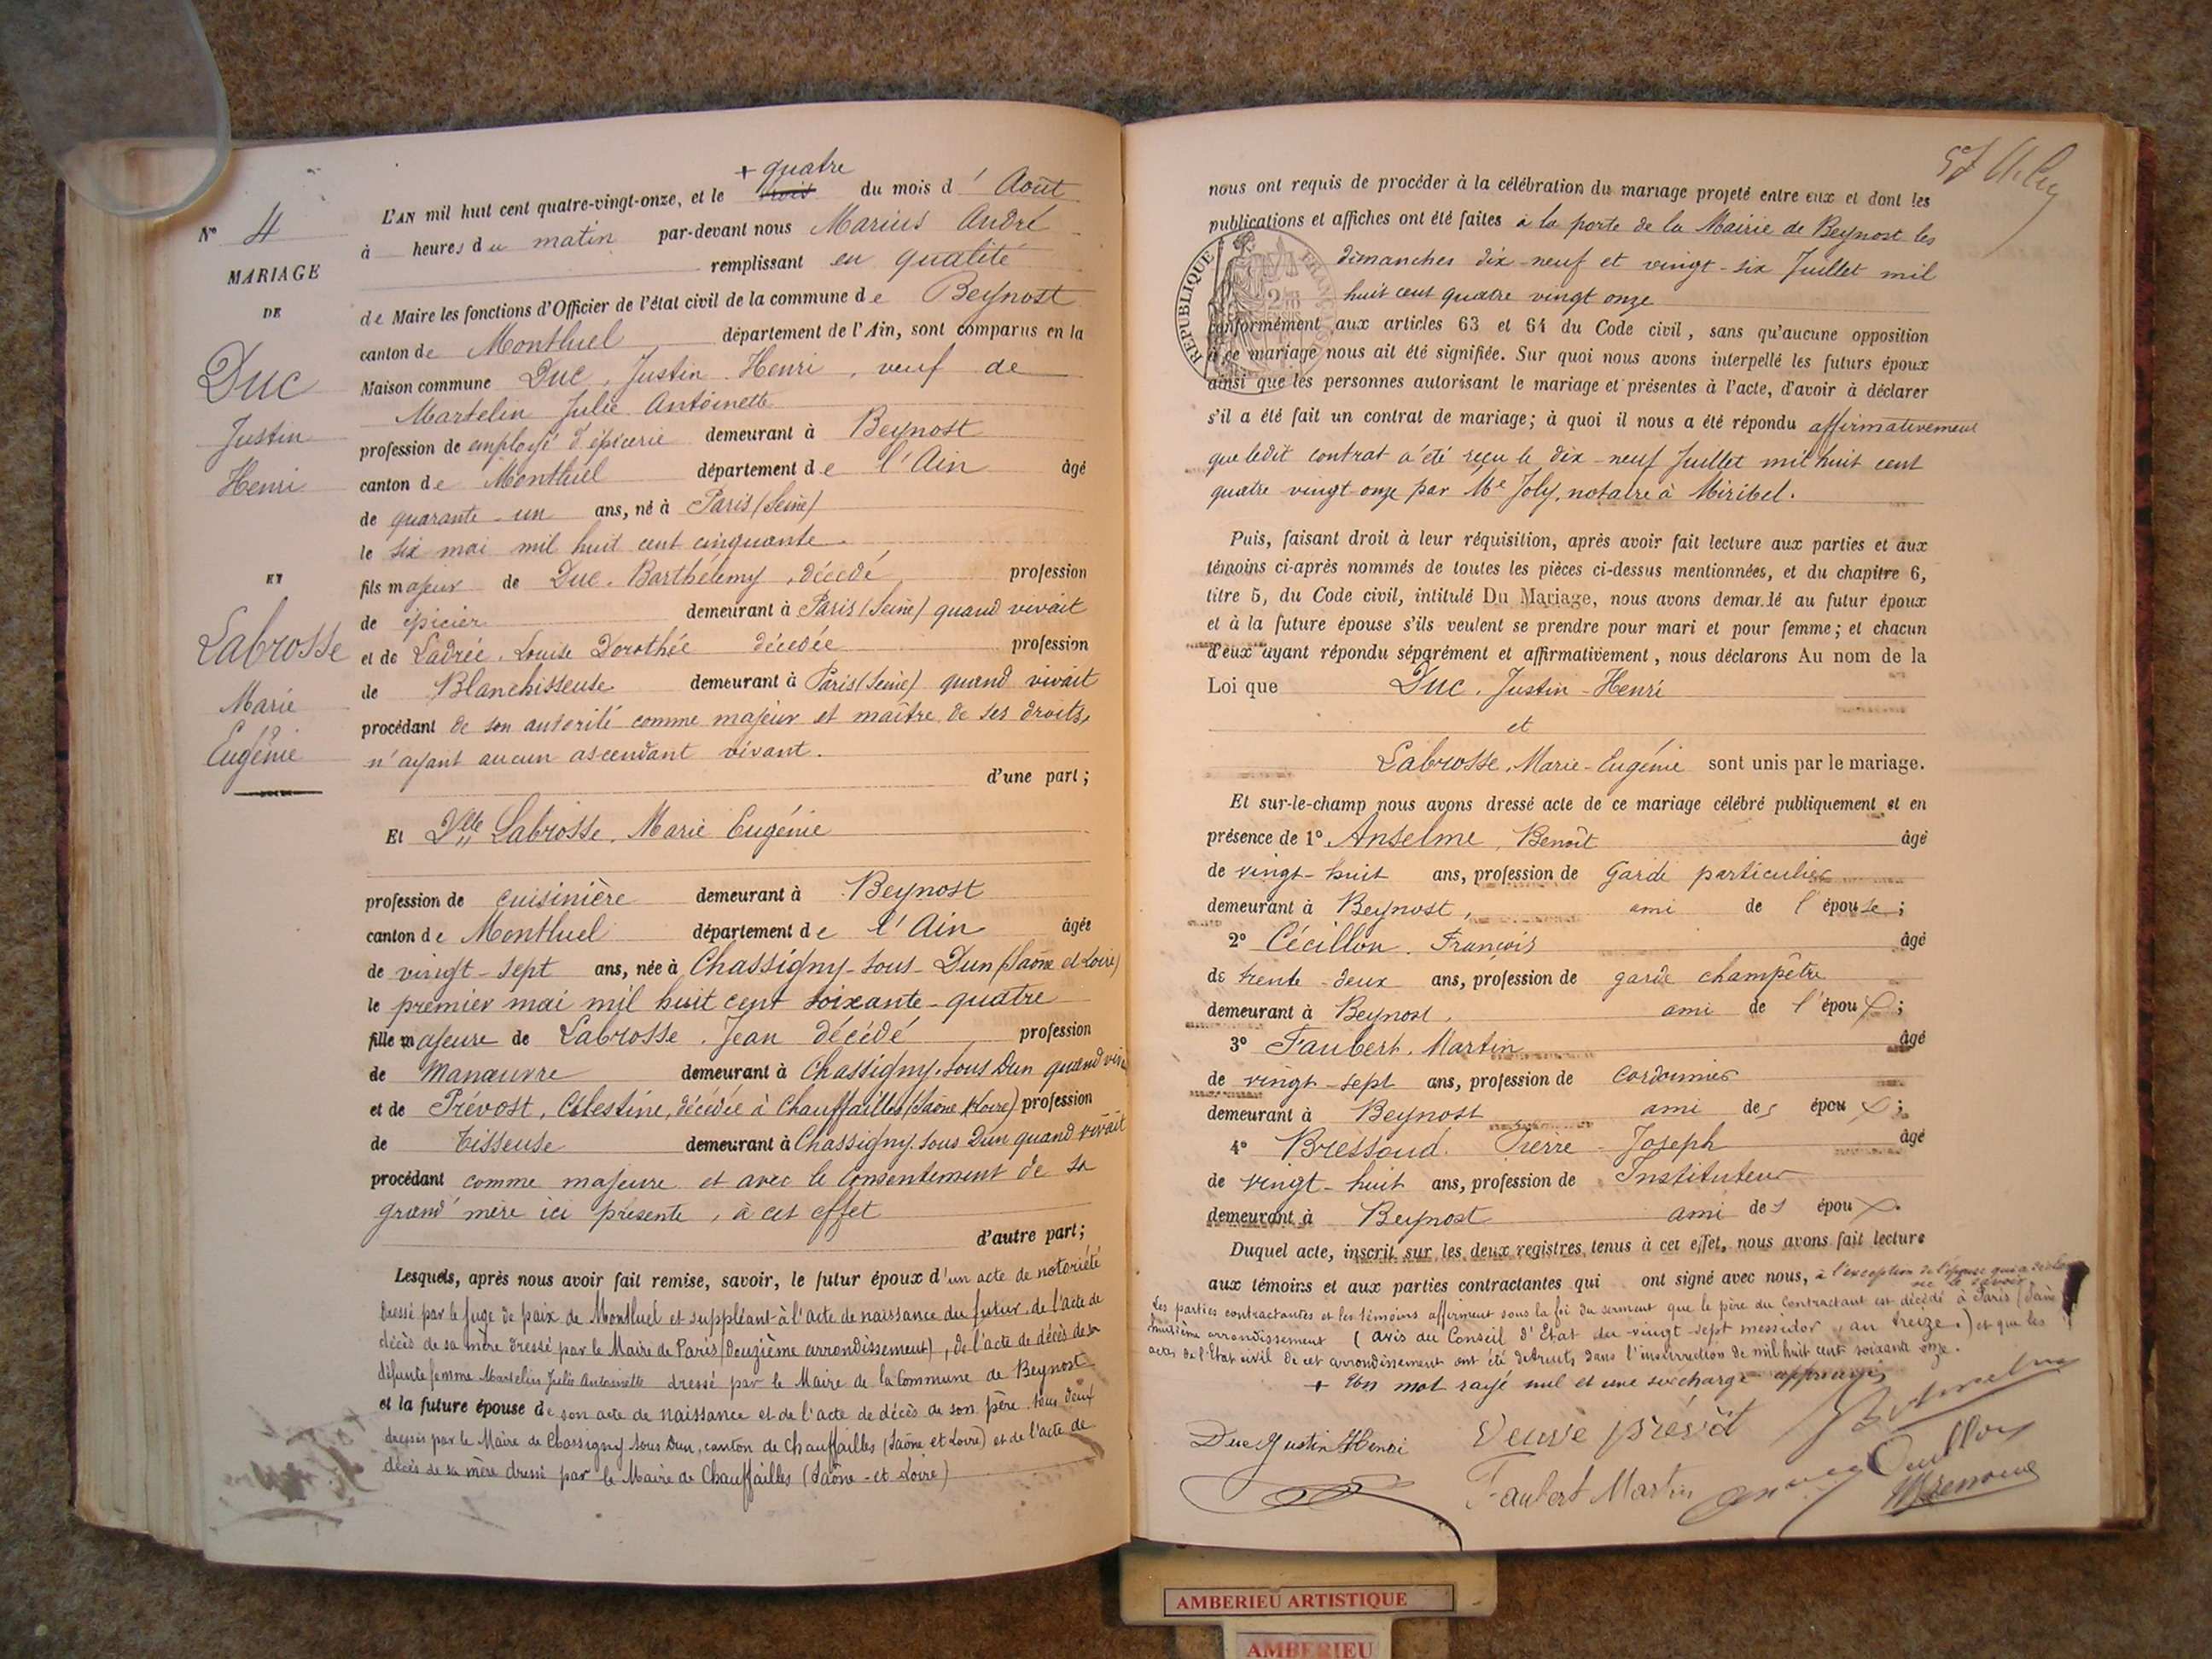 N° 4
MARIAGE
DE
Duc
Justin
Henri
ET
Labrosse
Marie
Eugénie
+ quatre
L'AN mil huit cent quatre-vingt-onze, et le trois du mois d' Août
à heures du matin par-devant nous Marius André
remplissant en qualité
de Maire les fonctions d'Officier de l'état civil de la commune de Beynost
canton de Montluel département de l'Ain, sont comparus en la
Maison commune Duc, Justin Henri, veuf de
Martelin Julie Antoinette
profession de employé d'épicerie demeurant à Beynost
canton de Montluel département de l'Ain âgé
de quarante-un ans, né à Paris (Seine)
le six mai mil huit cent cinquante
fils majeur de Duc Barthélemy, décédé profession
de épicier demeurant à Paris (Seine) quand vivait
et de Ladrée Louise Dorothée décédée profession
de Blanchisseuse demeurant à Paris (Seine) quand vivait
procédant de son autorité comme majeur et maître de ses droits,
n'ayant aucun ascendant vivant.
d'une part;
Et Dlle Labrosse, Marie Eugénie
profession de cuisinière demeurant à Beynost
canton de Montluel département de l'Ain âgée
de vingt-sept ans, née à Chassigny-sous-Dun (Saône et Loire)
le premier mai mil huit cent soixante-quatre
fille majeure de Labrosse Jean décédé profession
de Manœuvre demeurant à Chassigny-sous Dun quand
et de Prévost, Célestine, décédée à Chauffailles (Saône & Loire) profession
de Tisseuse demeurant à Chassigny sous Dun quand vivait
procédant comme majeure et avec le consentement de sa
grand'mère ici présente, à cet effet
d'autre part;
Lesquels, après nous avoir fait remise, savoir, le futur époux d'un acte de notoriété
dressé par le juge de paix de Montluel et suppléant à l'acte de naissance du futur, de l'acte de
décès de sa mère dressé par le Maire de Paris (deuxième arrondissement), de l'acte de décès de sa
défunte femme Martelin Julie Antoinette dressé par le Maire de la Commune de Beynost
et la future épouse de son acte de naissance et de l'acte de décès de son père tous deux
dressés par le Maire de Chassigny sous Dun, canton de Chauffailles (Saône et Loire) et de l'acte de
décès de sa mère dressé par le Maire de Chauffailles (Saône-et Loire)
nous ont requis de procéder à la célébration du mariage projeté entre eux et dont les
publications et affiches ont été faites à la porte de la Mairie de Beynost les
dimanches dix-neuf et vingt-six Juillet mil
huit cent quatre vingt onze
RÉPUBLIQUE FRANÇAISE
conformément aux articles 63 et 64 du Code civil, sans qu'aucune opposition
à ce mariage nous ait été signifiée. Sur quoi nous avons interpellé les futurs époux
ainsi que les personnes autorisant le mariage et présentes à l'acte, d'avoir à déclarer
s'il a été fait un contrat de mariage; à quoi il nous a été répondu affirmativement
que ledit contrat a été reçu le dix-neuf Juillet mil huit cent
quatre vingt-onze par Me Joly, notaire à Miribel.
Puis, faisant droit à leur réquisition, après avoir fait lecture aux parties et aux
témoins ci-après nommés de toutes les pièces ci-dessus mentionnées, et du chapitre 6,
titre 5, du Code civil, intitulé Du Mariage, nous avons demandé au futur époux
et à la future épouse s'ils veulent se prendre pour mari et pour femme; et chacun
d'eux ayant répondu séparément et affirmativement, nous déclarons Au nom de la
Loi que Duc, Justin-Henri
et
Labrosse, Marie-Eugénie sont unis par le mariage.
Et sur-le-champ nous avons dressé acte de ce mariage célébré publiquement et en
présence de 1° Anselme, Benoît âgé
de vingt-huit ans, profession de Garde particulier
demeurant à Beynost, ami de l'épouse;
2° Cécillon François âgé
de trente-deux ans, profession de garde champêtre
demeurant à Beynost, ami de l'époux;
3° Faubert, Martin âgé
de vingt-sept ans, profession de cordonnier
demeurant à Beynost ami des époux;
4° Bressoud Pierre-Joseph âgé
de vingt-huit ans, profession de Instituteur
demeurant à Beynost ami des époux.
Duquel acte, inscrit sur les deux registres tenus à cet effet, nous avons fait lecture
aux témoins et aux parties contractantes qui ont signé avec nous, à l'exception de l'épouse qui a déclaré
ne le savoir.
Les parties contractantes et les témoins affirment sous la foi du serment que le père du contractant est décédé à Paris (dans
huitième arrondissement (avis du Conseil d'Etat du vingt-sept messidor, an treize.) et que les
actes de l'Etat civil de cet arrondissement ont été détruits dans l'insurrection de mil huit cent soixante onze.
+ Un mot rayé nul et une surcharge approuvés
Duc Justin Henri
Veuve prévôt
Faubert Martin
AMBERIEU ARTISTIQUE
AMBERIEU